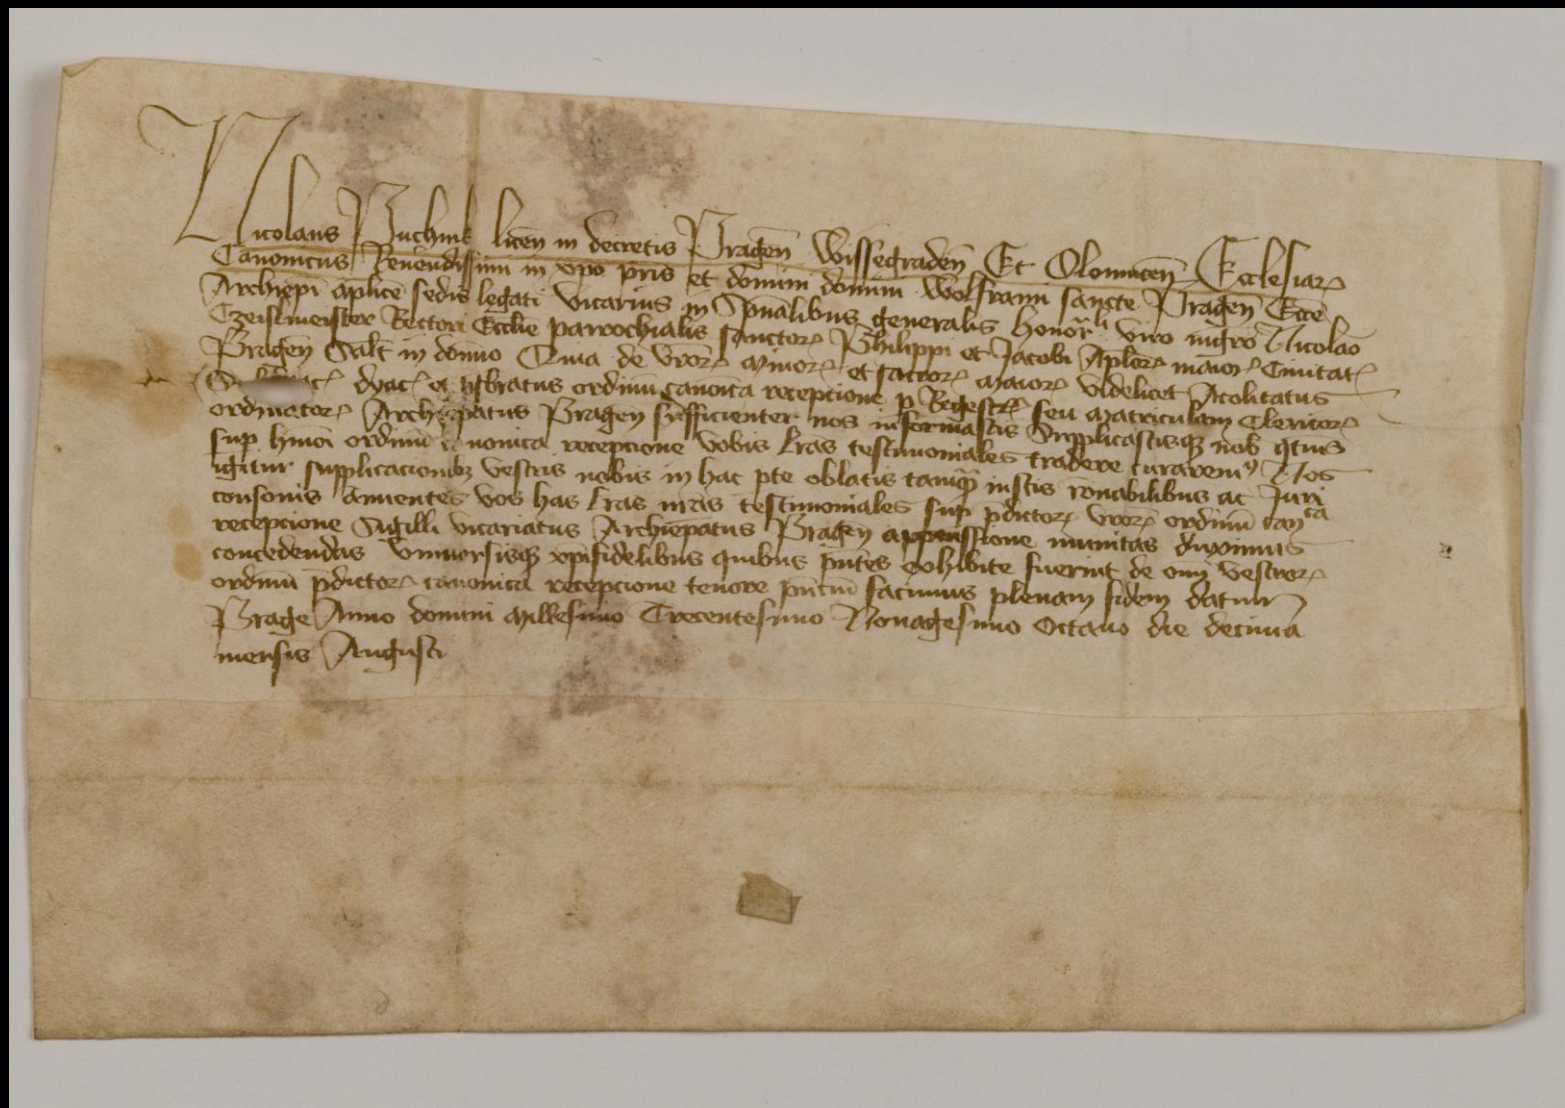 Nicolaus Puchnik licen in decretis Pragen Wissegraden Et Olomucen Ecclesiar
Canonicus Reuendissimi in xpo pris et domini domini Wolframi sancte Pragen Ecce
Archiepi aplice sedis legati vicarius in Spualibus generalis honorli viro mgro Nicolao
Czeislmeister Rectori Ecclie parrochialis sanctor Philippi et Jacobi Aplor maior Ciuitat
Pragen Salt in domino Quia de vror minor et sacror maior videlicet Acolitatus
dyac et psbratus ordinu canonica recepcione p Regestr seu matriculam Clericor
ordinator Archiepatus Pragen sufficienter nos informastis Supplicastisq nob qtus
sup hmoi ordinu canonica recepcione vobis lras testimoniales tradere curarem Nos
igitur supplicacionibz vestris nobis in hac pte oblatis tamq iustis ronabilibus ac Juri
consonis Annuentes vos has lras nras testimoniales sup pdictor vror ordinu canca
recepcione Sigilli vicariatus Archiepatus Pragen appenssione munitas duximus
concedendas vniuersisq xpifidelibus quibus pntes exhibite fuerint de omi vestror
ordinu pdictor canonica recepcione tenore pntiu facimus plenam fidem datum
Prage Anno domini Millesimo Trecentesimo Nonagesimo Octauo die decima
mensis Augusti